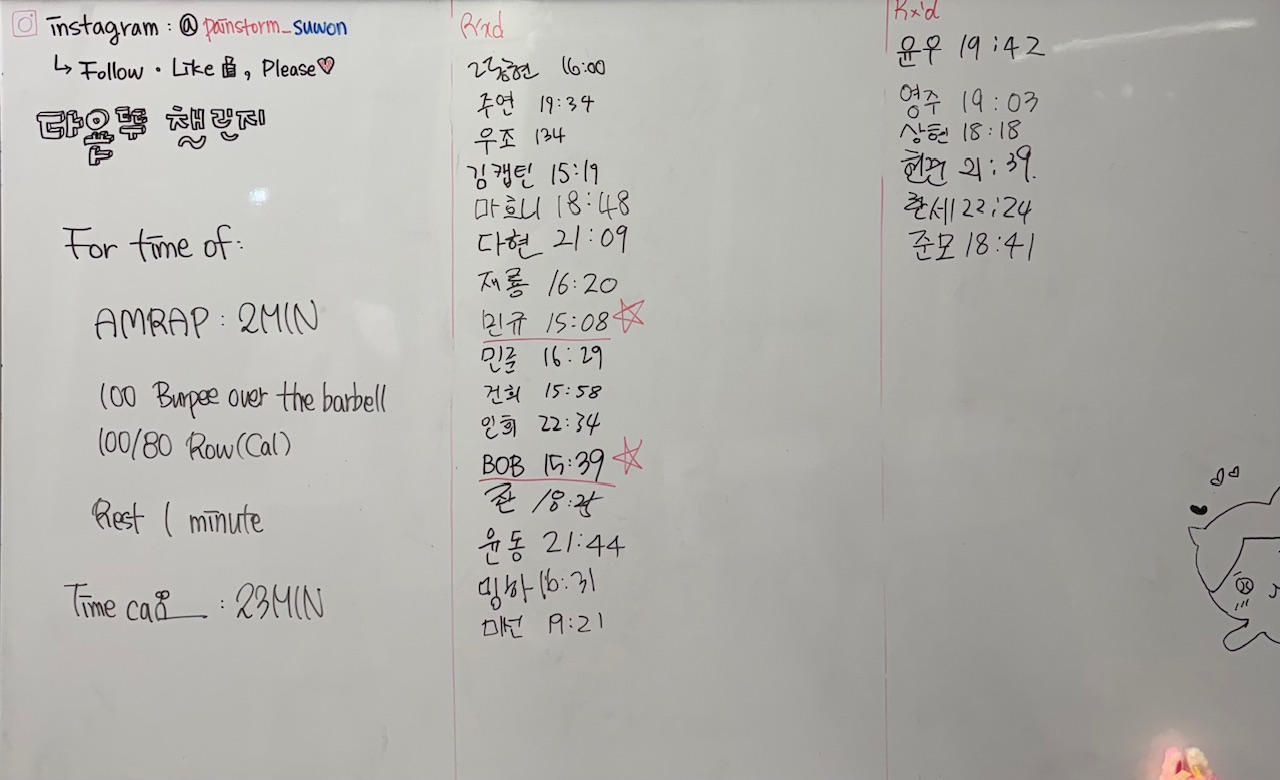 instagram : @painstorm_suwon
↳ Follow · Like , Please
다음뚜 챌린지
For time of:
AMRAP : 2MIN
100 Burpee over the barbell
100/80 Row(Cal)
Rest 1 minute
Time cap : 23MIN
Rxd
16:00
주연 19:34
우조 134
김캡틴 15:19
마흐니 18:48
다현 21:09
재룡 16:20
민규 15:08
민준 16:29
건희 15:58
인희 22:34
BOB 15:39
윤동 21:44
밍하 16:31
미선 19:21
Rx'd
윤우 19:42
영주 19:03
상현 18:18
21:39.
22:24
준모 18:41